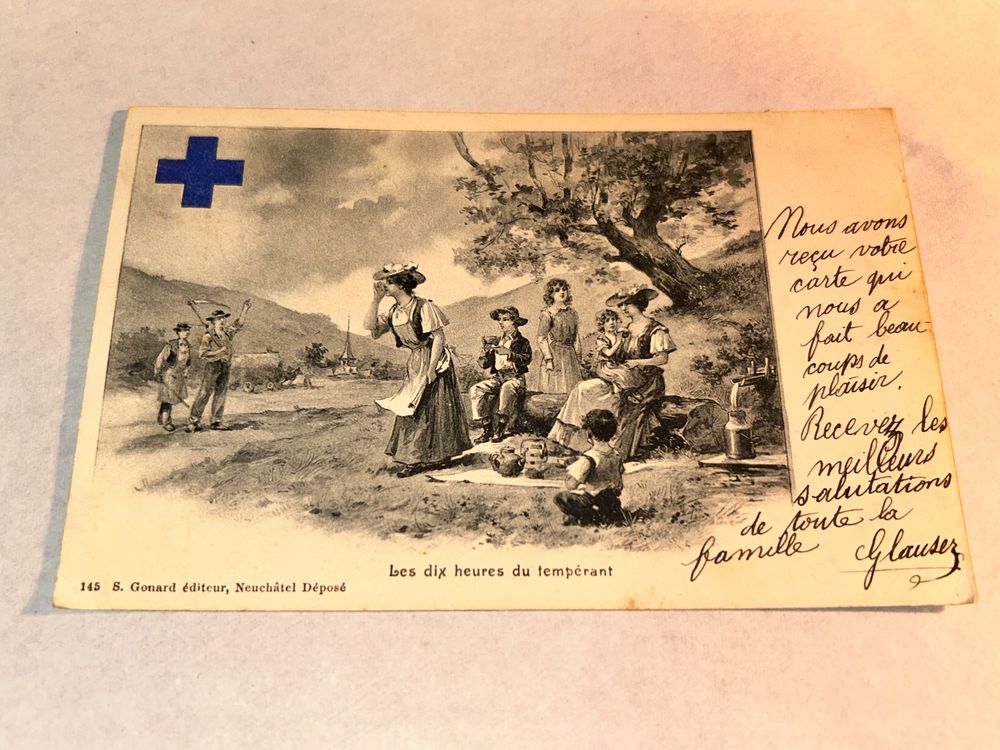 Nous avons
reçu votre
carte qui
nous a
fait beau
coups de
plaisir.
Recevez les
meilleurs
salutations
de toute la
famille Glauser
Les dix heures du tempérant
145 S. Gonard éditeur, Neuchâtel Déposé